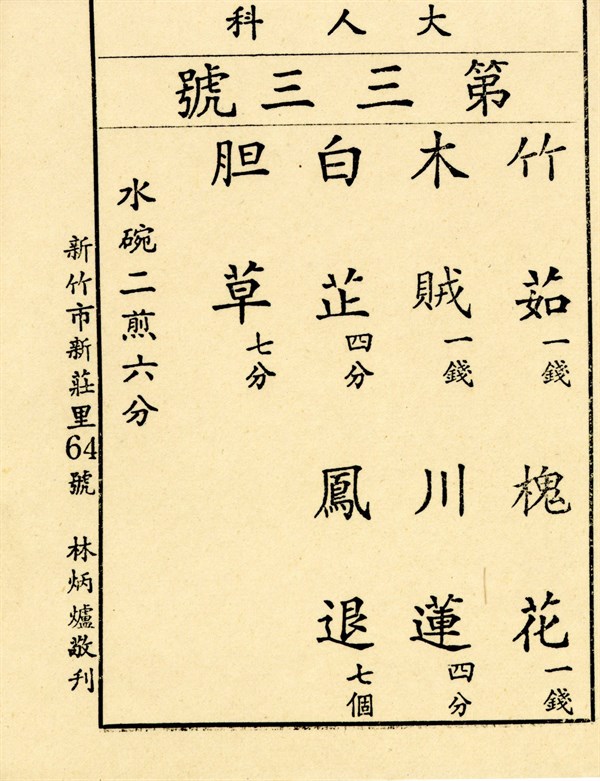 大人科
第三三號
竹茹一錢 槐花一錢
木賊一錢 川蓮四分
白芷四分 鳳退七個
胆草七分
水碗二煎六分
新竹市新莊里64號 林炳爐敬刊